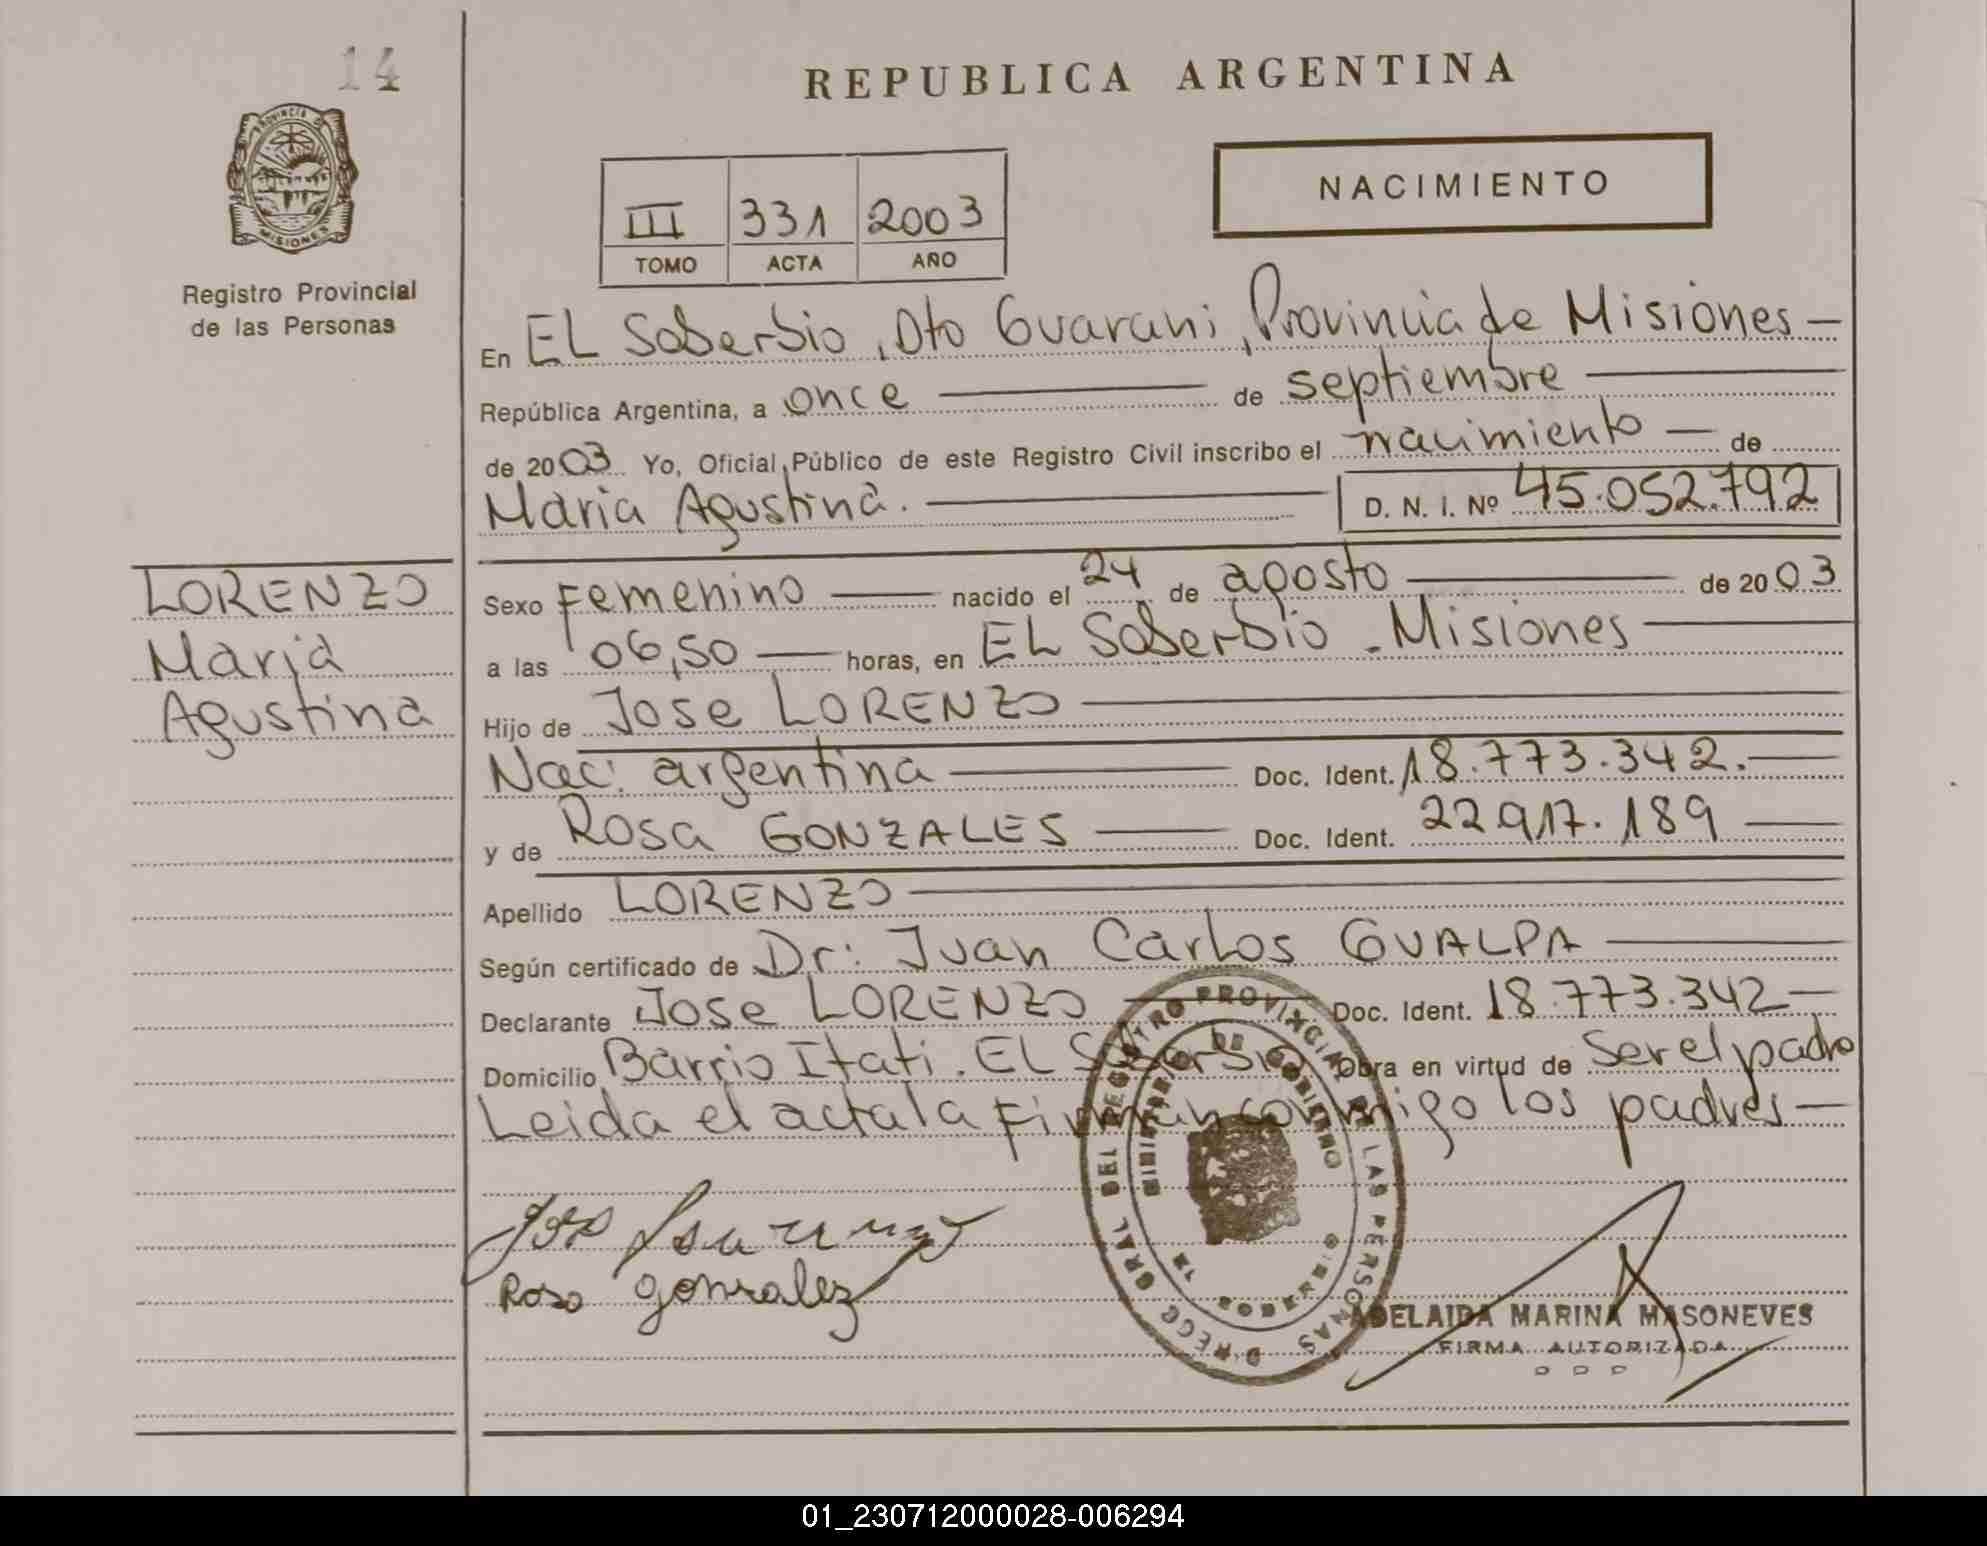 14
REPUBLICA ARGENTINA
PROVINCIA D
MISIONES
Registro Provincial
de las Personas
III 331 2003
TOMO ACTA AÑO
NACIMIENTO
En EL Soberbio, Dto Guarani, Provincia de Misiones —
República Argentina, a once — de septiembre —
de 2003 Yo, Oficial Público de este Registro Civil inscribo el nacimiento — de
Maria Agustina. — D. N. I. Nº 45.052.792
LORENZO
Maria
Agustina
Sexo Femenino — nacido el 24 de agosto — de 2003
a las 06,50 — horas, en EL Soberbio - Misiones —
Hijo de Jose LORENZO —
Nac: argentina — Doc. Ident. 18.773.342. —
y de Rosa GONZALES — Doc. Ident. 22.917.189 —
Apellido LORENZO —
Según certificado de Dr: Juan Carlos GUALPA —
Declarante Jose LORENZO — Doc. Ident. 18.773.342 —
Domicilio Barrio Itati. EL Soberbio. Obra en virtud de ser el padre
Leida el acta la firman conmigo los padres —
DIREC GRAL DEL REGISTRO PROVINCIAL DE LAS PERSONAS
MINISTERIO DE GOBIERNO
SOBERBIO
Jose
Rosa gonzalez
ADELAIDA MARINA MASONEVES
FIRMA AUTORIZADA
01_230712000028-006294